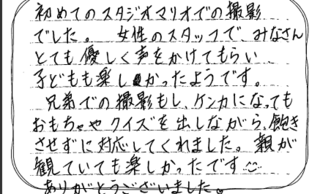 初めてのスタジオマリオでの撮影
でした。 女性のスタッフで、みなさん
とても優しく声をかけてもらい
子どもも楽しかったようです。
兄弟での撮影もし、ケンカになっても
おもちゃやクイズを出しながら、飽き
させずに対応してくれました。親が
観ていても楽しかったです
ありがとうございました。